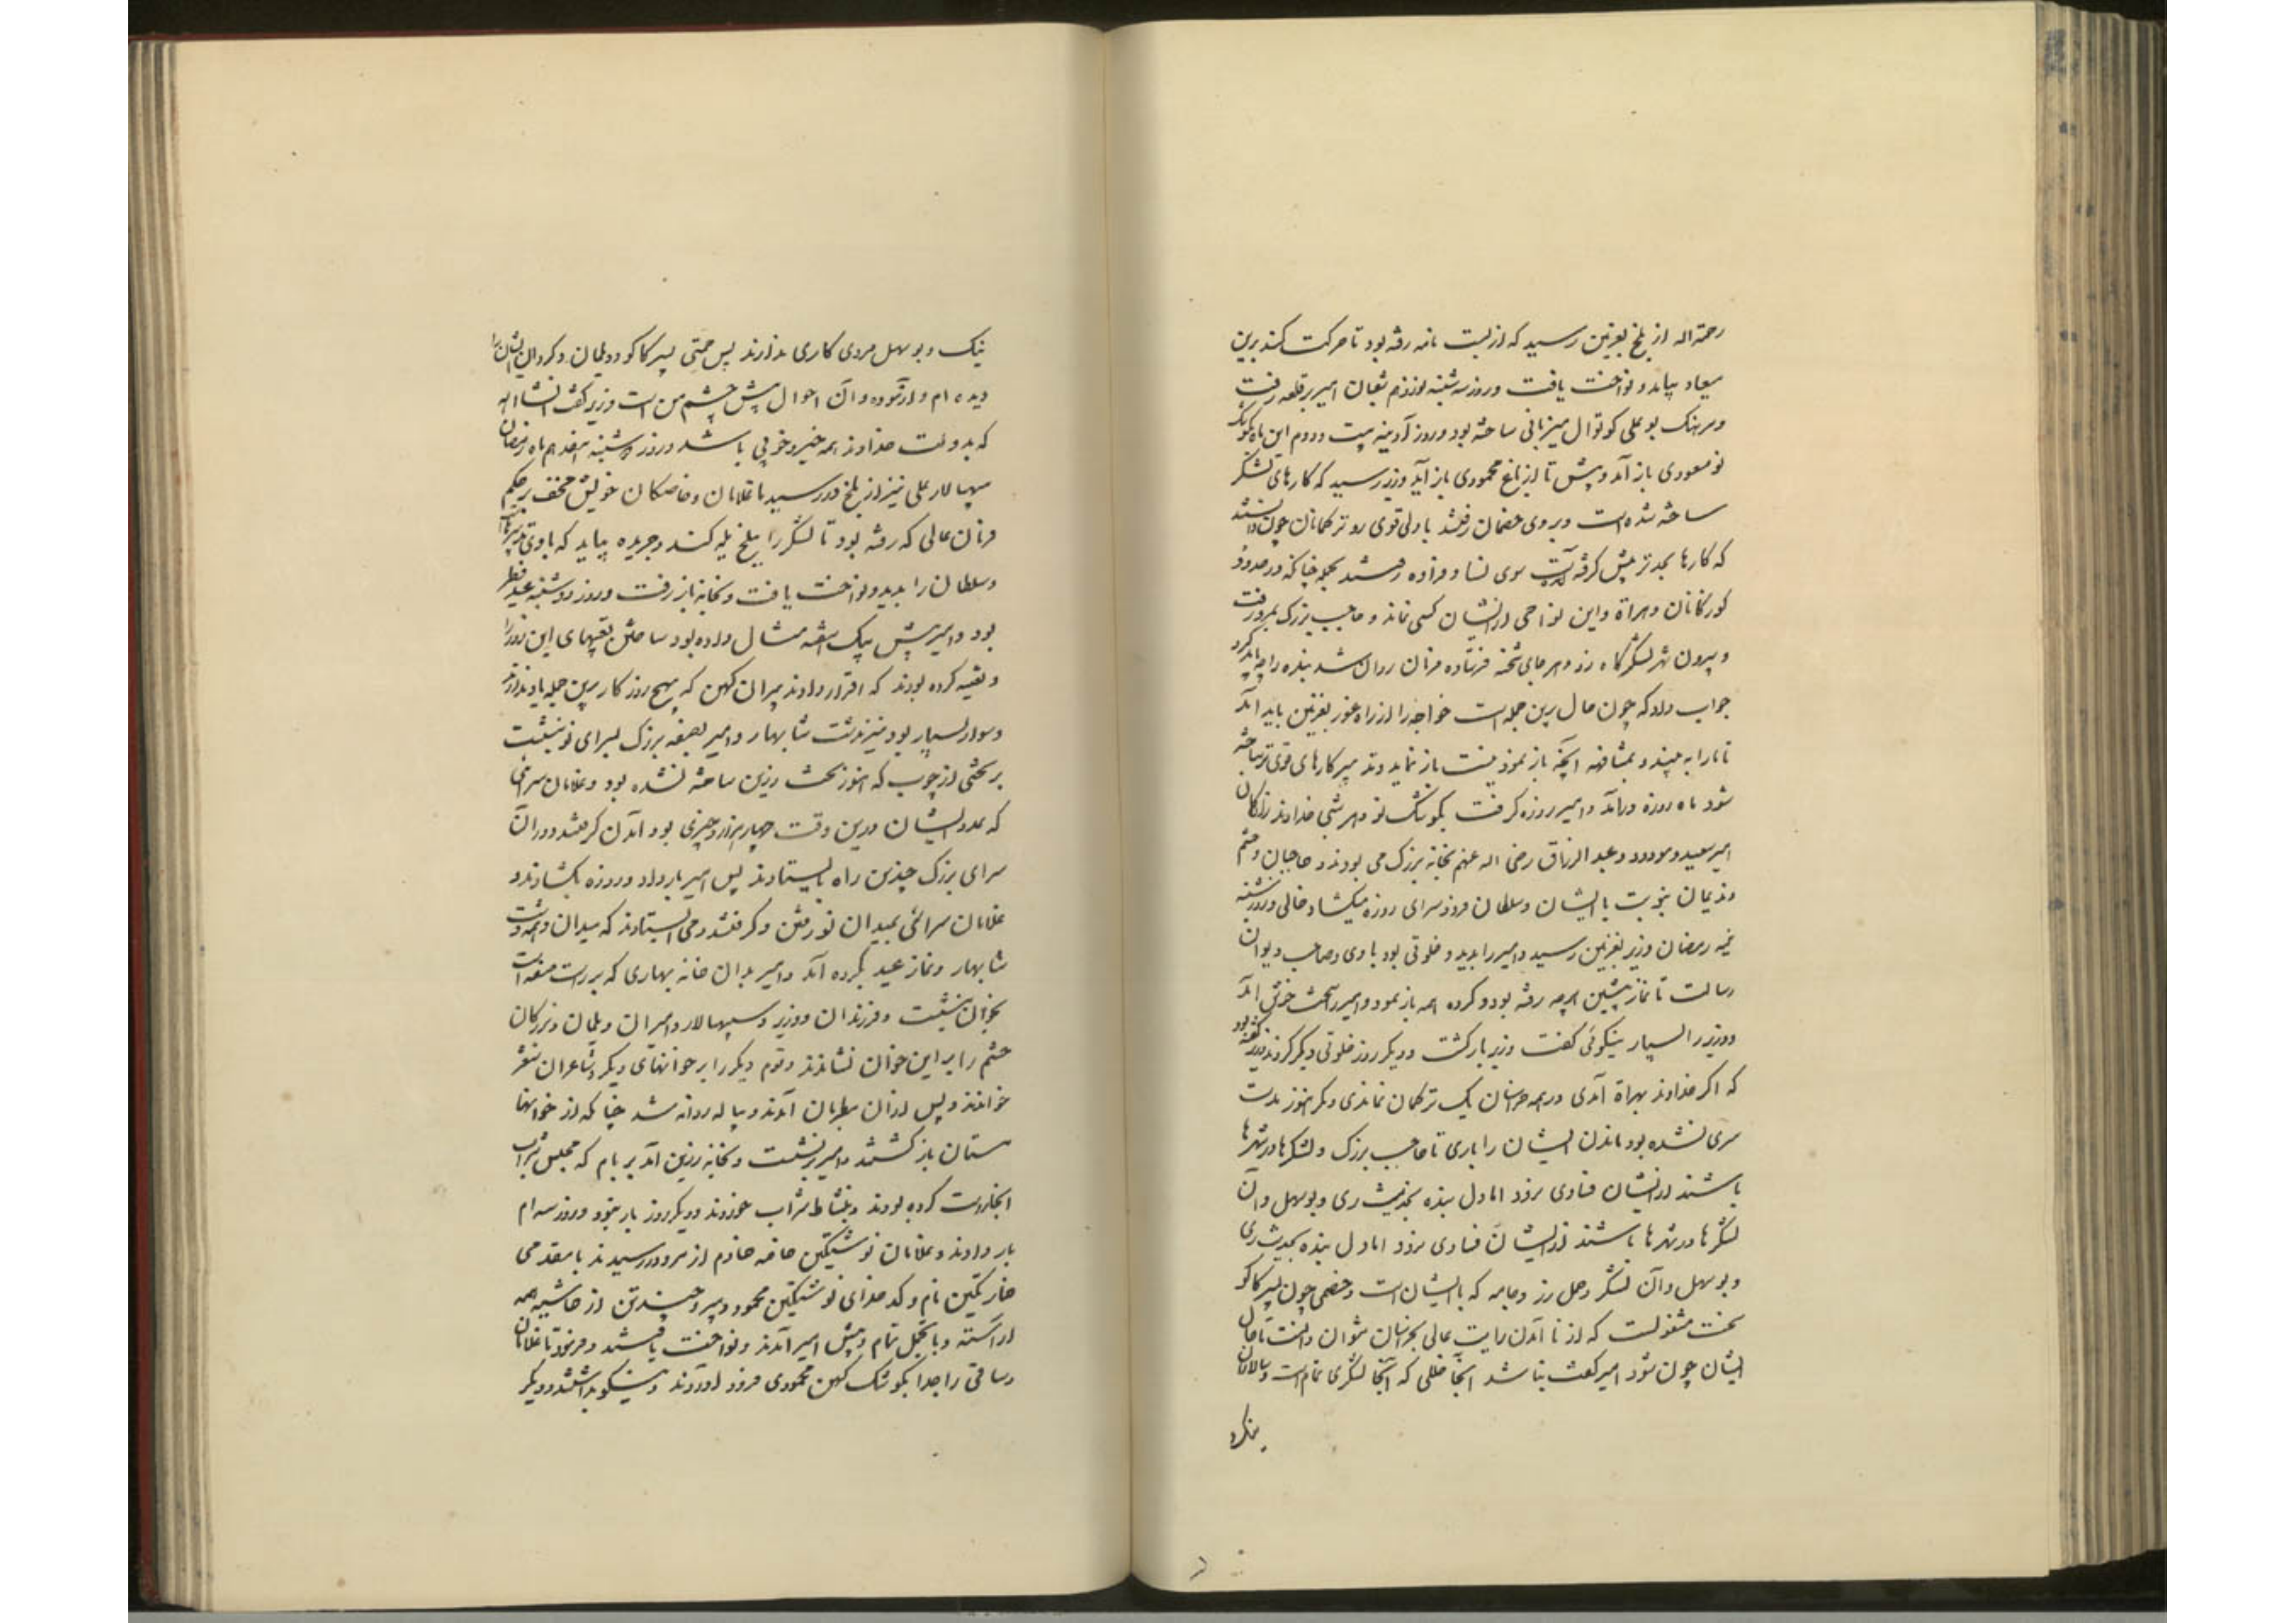 رحمة اله از بلخ بغزنین رسید که از بست نامه رفته بود تا حرکت کند برین
میعاد بیاید و نواخت یافت و روز سه شنبه نوزدهم شعبان امیر بر قلعه رفت
و سرهنک بوعلی کوتوال میزبانی ساخته بود و روز آدینه بیست و دوم این ماه بکوشک
نو مسعودی باز آمد و پیش تا از باغ محمودی باز آید وزیر رسید که کارهای لشکر
ساخته شده است و بروی خصمان رفتند با دلی قوی رو ترکمانان چون دانستند
که کارها بجد تر پیش کرفته آمد سوی نسا و فراوه رفتند بجمله چنانکه در حدود
کورکانان و هراة و این نواحی از ایشان کسی نماند و حاجب بزرک بمرو رفت
و بیرون شهر لشکرگاه زد و هر جای شحنه فرستاده فرمان روان شد بنده را چه باید کرد
جواب داد که چون حال برین جمله است خواجه را از راه غور بغزنین باید آمد
تا ما را به بیند و بمشافهه آنچه باز نمودنیست باز نماید و تدبیر کارهای قوی تر ساخته
شود ماه روزه درآمد و امیر روزه کرفت بکوشک نو و هر شبی خداوند زادکان
امیر سعید و مودود و عبد الرزاق رضی اله عنهم بخانه بزرک می بودند و حاجبان و حشم
و ندیمان بنوبت با ایشان و سلطان فرود سرای روزه میکشاد خالی و روز شنبه
نیمه رمضان وزیر بغزنین رسید و امیر را بدید و خلوتی بود با وی و صاحب دیوان
رسالت تا نماز پیشین هرچه رفته بود و کرده همه باز نمود و امیر را سخت خوش آمد
و وزیر را بسیار نیکوئی کفت وزیر بازکشت و دیکر روز خلوتی دیکر کردند وزیر کفته بود
که اکر خداوند بهراة آمدی در همه خراسان یک ترکمان نماندی و مکر هنوز مدت
سری نشده بود ماندن ایشان را باری تا حاجب بزرک و لشکرها در شهرها
باشند از ایشان فسادی نرود اما دل بنده بحدیث ری و بوسهل و آن
لشکرها در شهرها باشند از ایشان فسادی نرود اما دل بنده بحدیث ری
و بوسهل و آن لشکر و حمل زر و جامه که با ایشان است و خصمی چون پسر کاکو
سخت مشغولست که از نا آمدن رایت عالی بخراسان نتوان دانست تا حال
ایشان چون شود امیر کفت نباشد آنجا خللی که آنجا لشکری تمام است و سالاران
نیک و بوسهل مردی کاری ندارند پس حمتی پسر کاکو و دیلمان و کردان ایشان را
دیده ام و آزموده و آن احوال پیش چشم من است وزیر کفت انشا اله
که بدولت خداوند همه خیر و خوبی باشد و روز دوشنبه هفدهم ماه رمضان
سپهسالار علی نیز از بلخ در رسید با غلامان و خاصکان خویش مخف بر حکم
فرمان عالی که رفته بود تا لشکر را ببلخ یله کند و جریده بیاید که با وی تدبیرهاست
و سلطان را بدید و نواخت یافت و بخانه باز رفت و روز دوشنبه عید فطر
بود و امیر پیش بیک هفته مثال داده بود ساختن تعبیهای این روز را
و تعبیه کرده بودند که اقرار دادند پیران کهن که بهیچ روزکار برین جمله یاد ندارند
و سوار بسیار بود نیز بدشت شابهار و امیر بصفه بزرک بسرای نو بنشست
بر تختی از چوب که هنوز تخت زرین ساخته نشده بود و غلامان سرائی
که عدد ایشان درین وقت چهار هزار و چیزی بود آمدن کرفتند و در آن
سرای بزرک چندین راه بایستادند پس امیر بار داد و روزه بکشادند و
غلامان سرائی بمیدان نو رفتن کرفتند و می ایستادند که میدان و همه دشت
شابهار و نماز عید بکرده آمد و امیر بدان خانه بهاری که بر راست صفه است
بخوان بنشست و فرزندان و وزیر و سپهسالار و امیران دیلمان و بزرکان
حشم را بر این خوان نشاندند و قوم دیکر را بر خوانهای دیکر و شاعران شعر
خواندند و پس از آن مطربان آمدند و پیاله روانه شد چنانکه از خوانها
مستان بازکشتند و امیر برنشست و بخانه زرین آمد بر بام که مجلس شراب
آنجا راست کرده بودند و بنشاط شراب خوردند و دیکر روز بار نبود و روز سه ام
بار دادند و غلامان نوشتکین خاصه خادم از مرو در رسیدند با مقدمی
خارتکین نام و کدخدای نوشتکین محمود دبیر و چند تن از حاشیه همه
آراسته و با تجمل تمام پیش امیر آمدند و نواخت یافتند و فرمود تا غلامان
وساقی را جدا بکوشک کهن محمودی فرود آوردند و نیکو بداشتند و دیکر
بنکرد